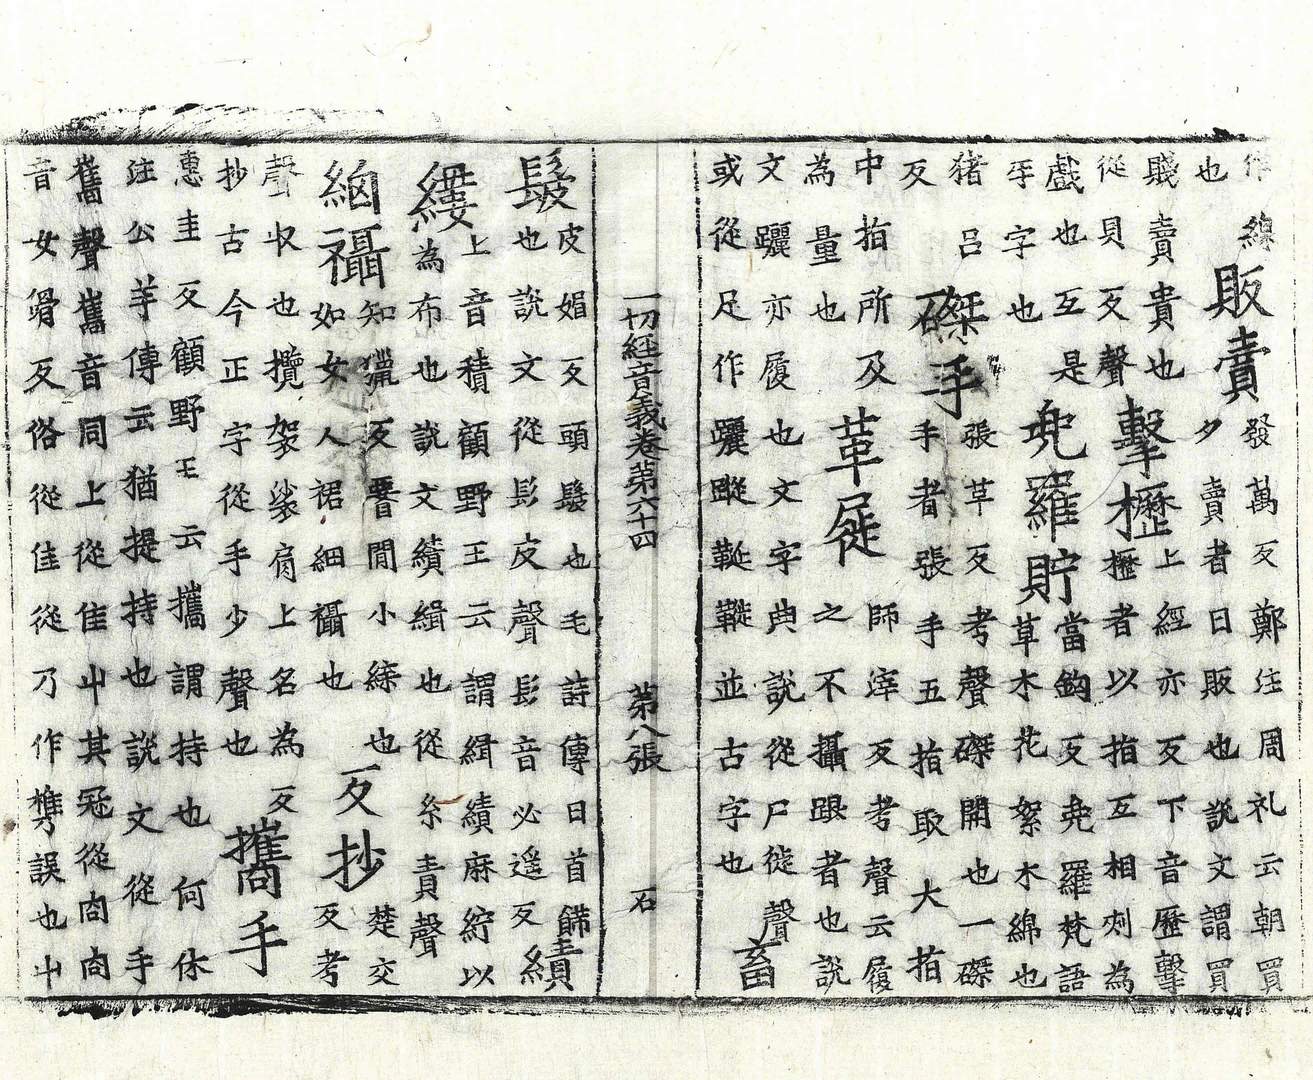 作線
也
販賣
發萬反鄭注周礼云朝買
夕賣者曰販也說文謂買
賤賣貴也
從貝反聲
擊櫪
上經亦反下音歷擊
櫪者以指互相刾為
戲也互是
㸦字也
兜羅貯
當鉤反兜羅梵語
草木花絮木綿也
猪呂
反
磔手
張革反考聲磔開也一磔
手者張手五指取大指
中指所及
為量也
革屣
師滓反考聲云履
之不攝跟者也說
文躧亦履也文字典說從尸徙聲
或從足作躧蹝並古字也
畜
一切經音義卷第六十四 第八張 石
髲
皮媚反頭髲也毛詩傳曰首飾
也說文從髟皮聲髟音必遥反
績
縷
上音積顧野王云謂緝績麻紵以
為布也說文績緝也從糸責聲
襵
知獵反間小也
如女人裙細襵也
反抄
楚交
反考
聲収也攬袈裟肩上名為反
抄古今正字從手少聲也
攜手
惠圭反顧野王云攜謂持也何休
注公羊傳云猶提持也說文從手
巂聲巂音同上從隹屮其冠從㕯㕯
音女滑反俗從隹從乃作㩗誤也屮